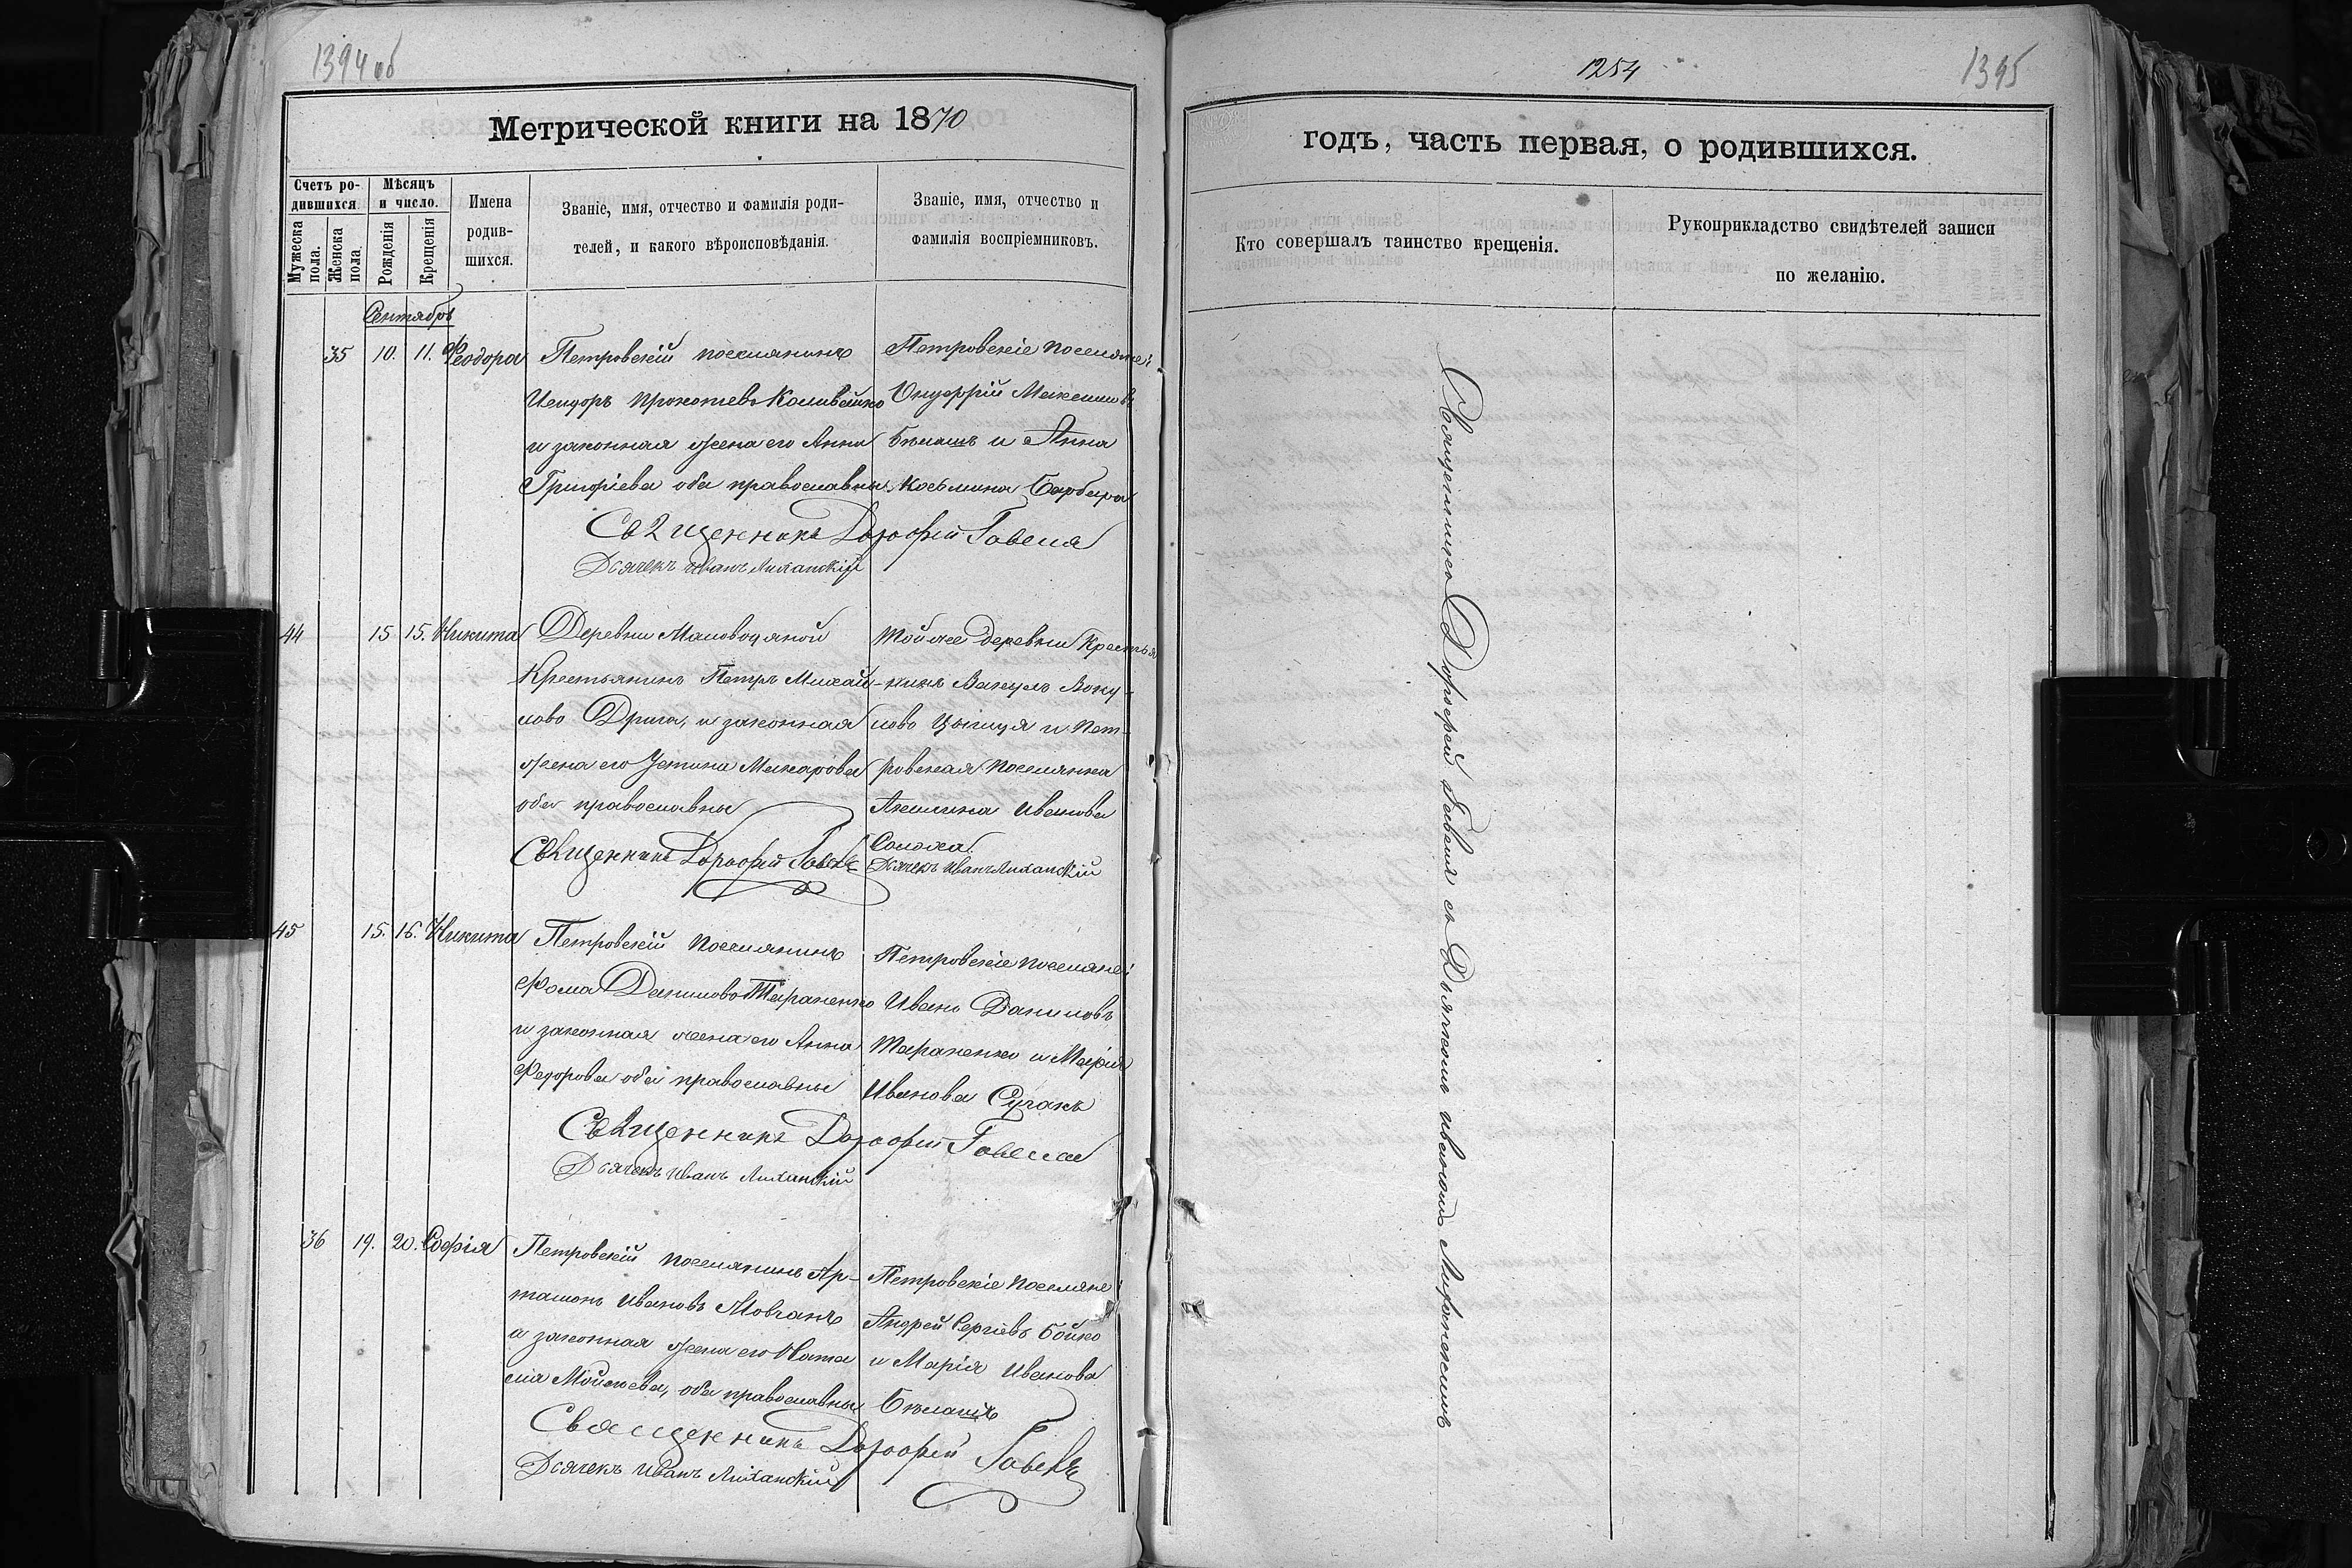 1394 об
Метрической книги на 1870
Счетъ ро-
дившихся.
Мѣсяцъ
и число.
Мужеска пола.
Женска пола
Рожденія
Крещенія
Имена
родив-
шихся.
Званіе, имя, отчество и фамилія роди-
телей, и какого вѣроисповѣданія.
Званіе, имя, отчество и
фамилія воспріемниковъ.
Сентябрь
35 10. 11. Феодора
Петровскій поселянинъ
Исидоръ
и законная жена его Анна
Григоріева оба православны
Петровскіе поселяне:
Онуфрій Максимовъ
Бѣлашъ и Анна
Косьмина Барбара
Священникъ Дорофей Гавеля
Дьячекъ Иванъ
44 15 15. Никита
Деревни
Крестьянинъ Петръ Михай-
ловъ Дрига, и законная
жена его Устина Макарова
оба православны
Той же деревни Крестья
нинъ Вакулъ Воку-
ловъ и Пет-
ровская поселянка
Акилина Иванова
Солоха
Священникъ Дорофей
Дьячекъ Иванъ
45 15. 16. Никита
Петровскій поселянинъ
Фома Даниловъ Тараненко
и законная жена его Анна
Федорова оба православны
Петровскіе поселяне:
Иванъ Даниловъ
Тараненко и Марія
Иванова Сучакъ
Священникъ Дорофей Гавеля
Дьячекъ Иванъ
36 19. 20. Софія
Петровскій поселянинъ Ар-
тамонъ Ивановъ Мовчанъ
и законная жена его Ната
лія Мойсеева, оба православны
Петровскіе поселяне:
Андрей Сергіевъ Бойко
и Марія Иванова
Бѣлашъ
Священникъ Дорофей
Дьячекъ Иванъ
1254
1395
годъ, часть первая, о родившихся.
Кто совершалъ таинство крещенія.
Рукоприкладство свидѣтелей записи
по желанію.
Священникъ Дорофей Гавеля съ Дьячкомъ Иваномъ